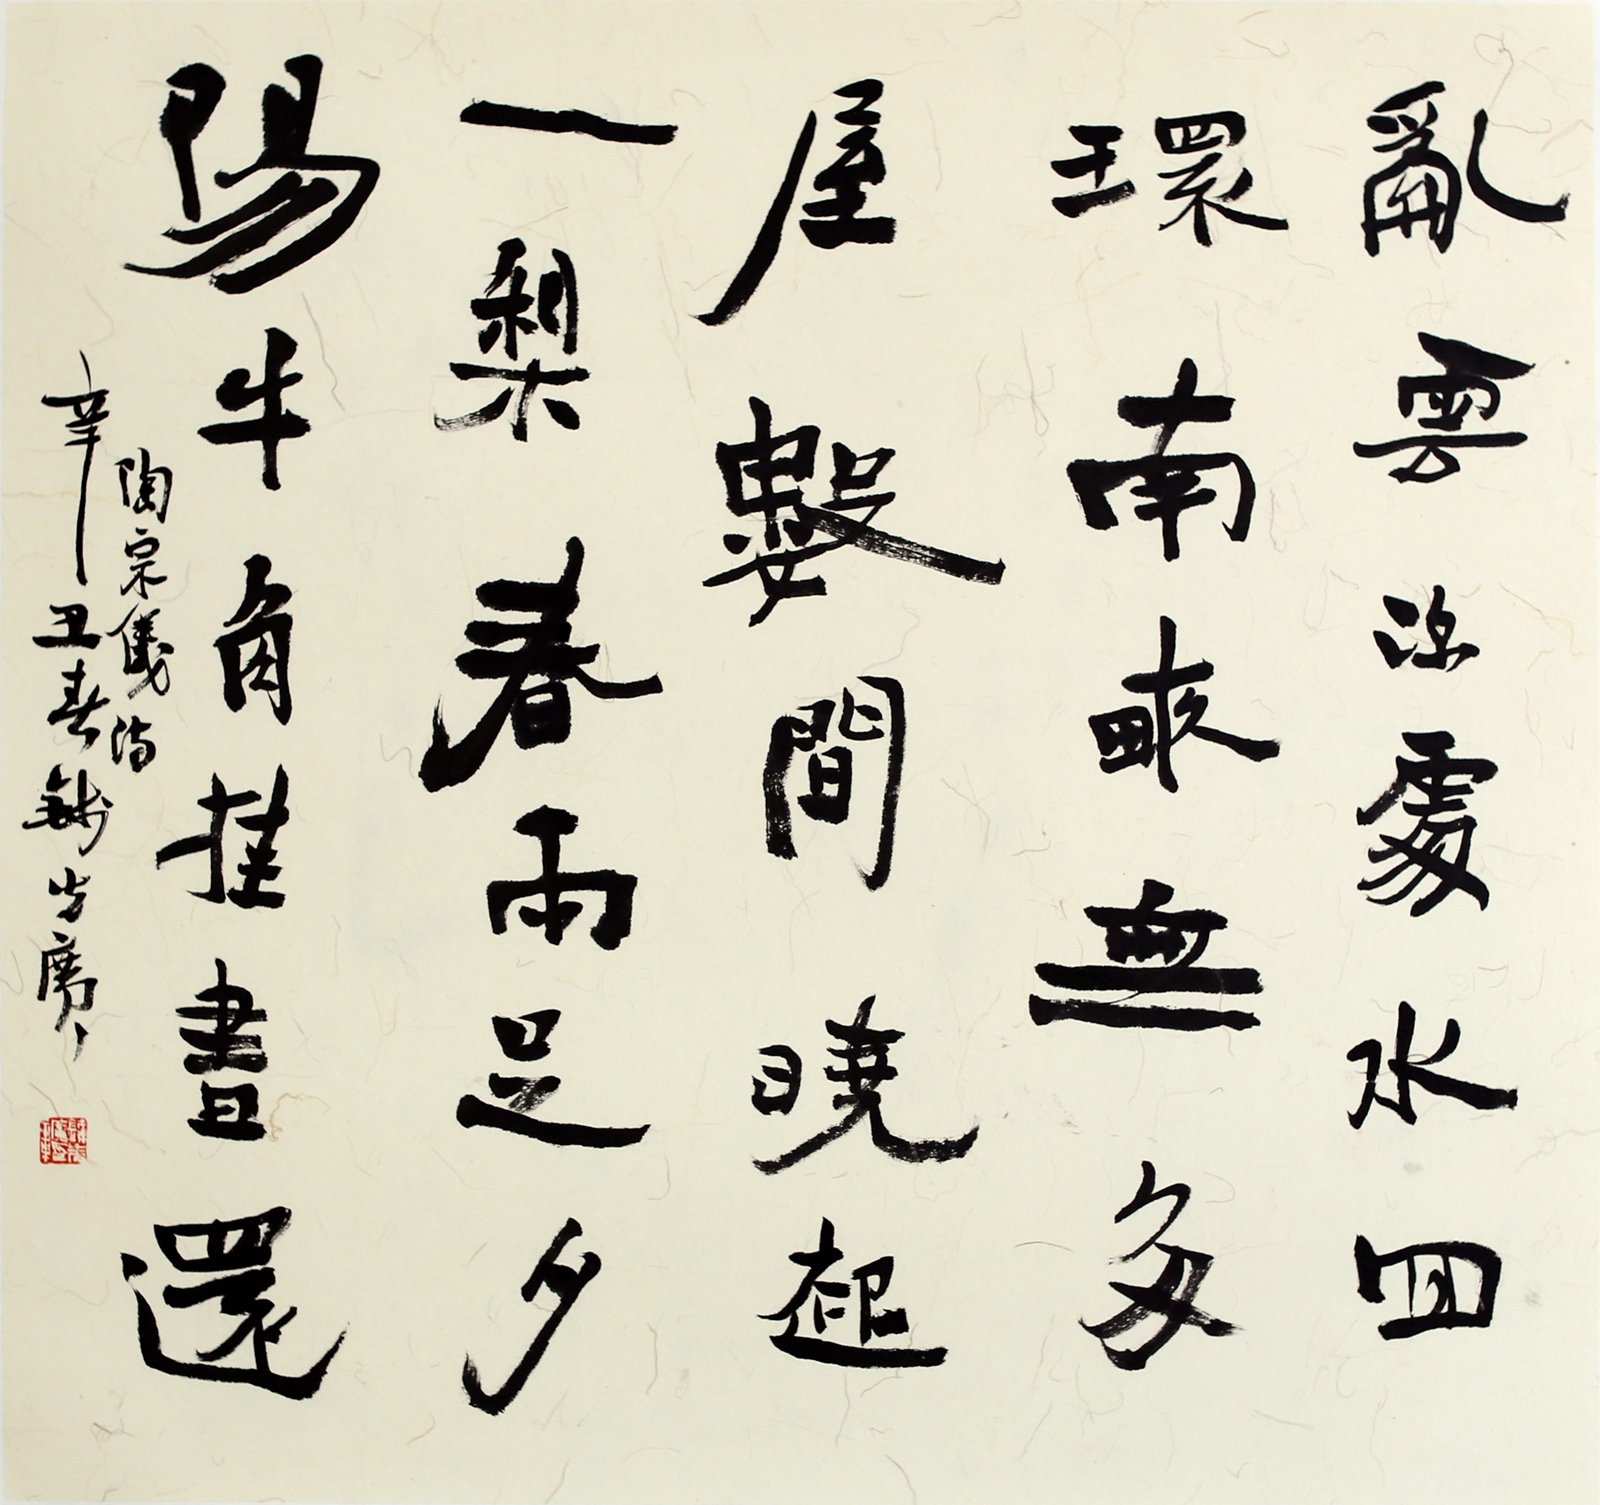 亂雲深處水回
環南畝無多
屋數間曉起
一梨春雨足夕
陽牛角挂書還
陶宗儀詩
辛丑春